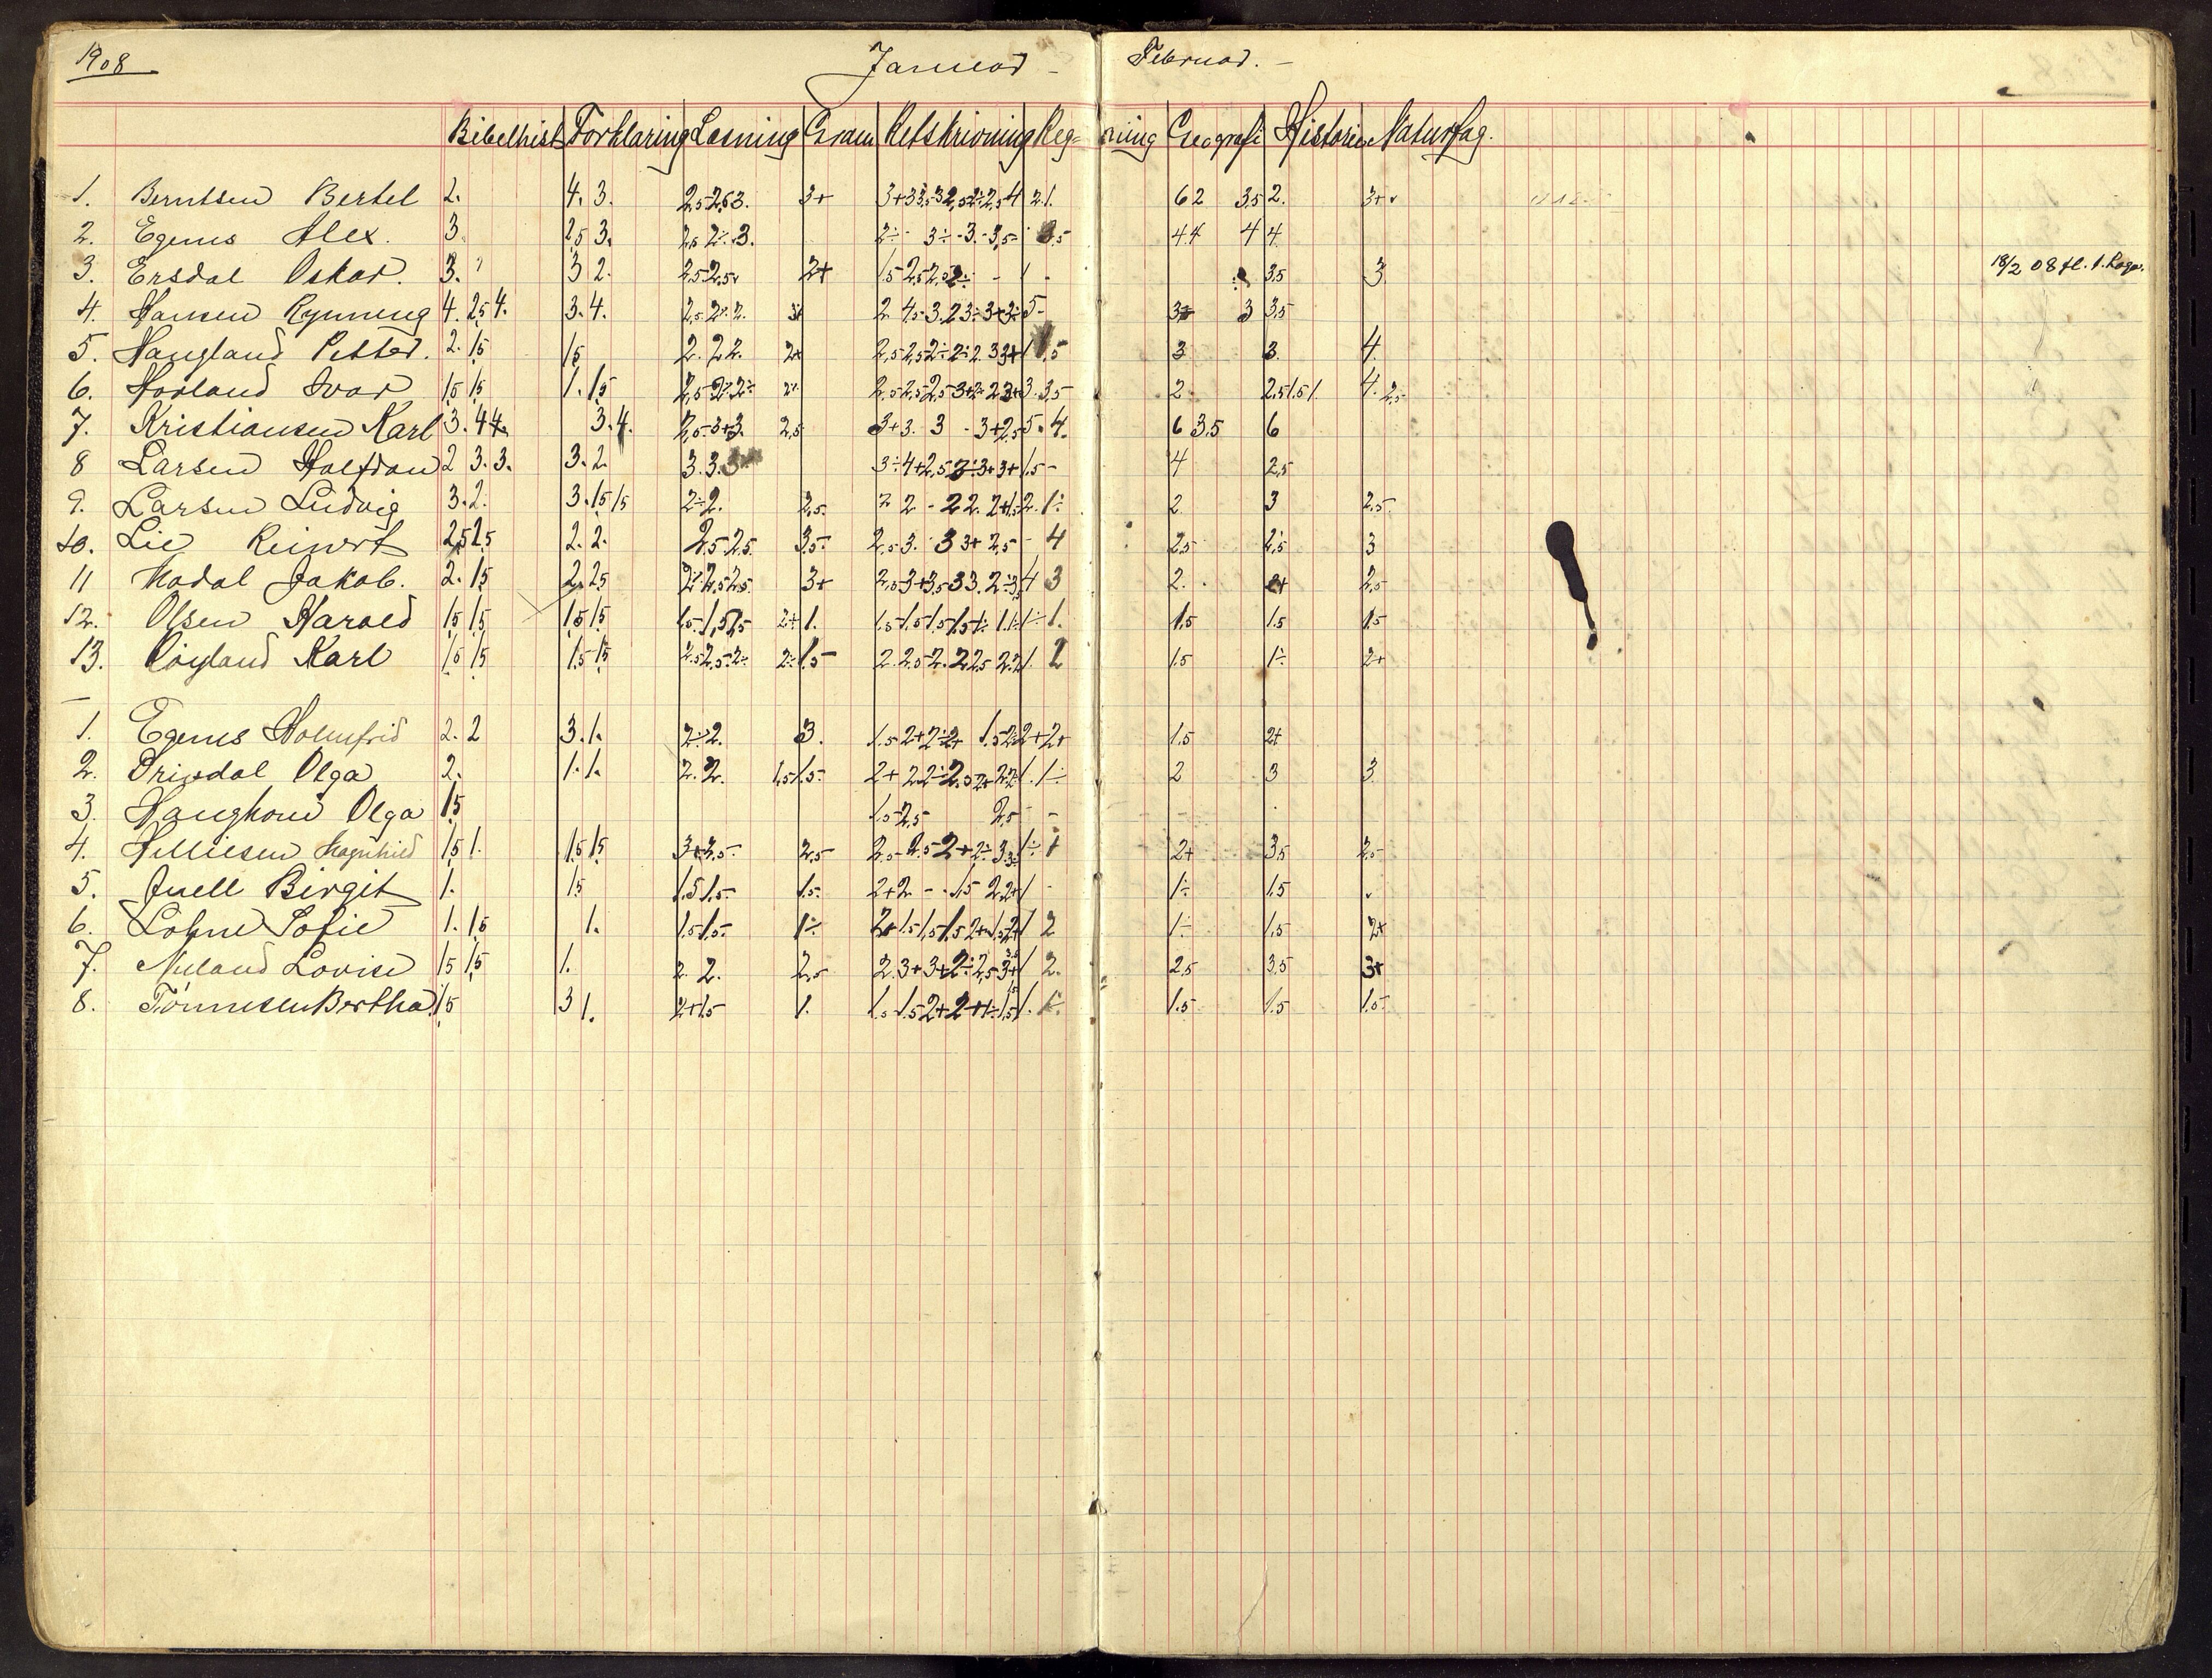 1908 Januar - Februar. -
Bibelhist Forklaring Læsning Gram Retskrivning Reg- ning Geografi Historie Naturfag.
1. Berntsen Bertel 2. 4. 3. 2,5 2,5 3. 3+ 2 1. 6 2 3,5 2. 3+
2. Egenes Alex. 3. 2,5 3. 2,5 2÷ 3. 2÷ - 3÷ - 3. - 3,5 4 4 4 4
3. Ersdal Oskar. 3. 3 2. 2,5 2,5 2+ 1,5 2,5 3,5 3 18/2 08 fl. 1.
4. Hansen Rynning 4. 2,5 4. 3. 4. 2,5 2÷ 2. 3+ 5- 3 3,5
5. Haugland Petter. 2. 1,5 1,5 2. 2 2. 2+ 2,5 2,5 2÷ 2÷ 2. 3 3+ 1 3 3. 4.
6. Hovland Ivar 1,5 1,5 1. 1,5 2,5 2÷ 2÷ 2÷ 2,5 2,5 2,5 3+ 3. 3,5 2 2,5 1,5 1. 4. 2,5
7. Kristiansen Karl 3. 4 4. 3. 4. 2,5 3+ 3. 2,5 3+ 3. 3 - 3+ 2,5 5. 4. 6 3,5 6
8 Larsen Halfdan 2 3. 3. 3. 2. 3. 3. 3÷ 4+ 2,5 3÷ 3+ 3+ 1,5 - 4 2,5
9. Larsen Ludvig 3. 2. 3. 1,5 1,5 2÷ 2. 2,5 2 2 - 2 2. 2+ 1,5 2. 1÷ 2 3 2,5
10. Lie Reinert 2,5 2,5 2. 2. 2,5 2,5 3,5 2,5 3. 3 3+ 2,5 - 4 2,5 2,5 3
11 Modal Jakob. 2. 1,5 2. 2,5 2÷ 2,5 2,5 3+ 2,5 3+ 3,5 3 3. 2÷ 4 3 2. 2+ 2,5
12. Olsen Harald 1,5 1,5 1,5 1,5 1,5 1,5 1,5 2+ 1. 1,5 1,5 1,5 1,5 1÷ 1. 1÷ 1÷ 1. 1,5 1,5 1,5
13. Røyland Karl 1,5 1,5 1,5 1,5 2,5 2,5 2÷ 2÷ 1,5 2. 2,5 2. 2 2,5 2. 2 1. 2 1,5 1÷ 2+
1. Egenes Holmfrid 2. 2 3. 1. 2÷ 2. 3. 1,5 2+ 2÷ 2+ 1,5 2÷ 2+ 2+ 1,5 2+
2. Drivdal Olga 2. 1. 1. 2. 2. 1,5 1,5 2+ 2 2÷ 2,5 2+ 2. 2÷ 1. 1÷ 2 3 3
3. Haughom Olga 1,5 1,5 2,5 2,5 -
4. Helliesen Magnhild 1,5 1. 1,5 1,5 3+ 2,5 2,5 2,5 2,5 2+ 2÷ 3 1÷ 1 2+ 3,5 2,5
5. Juell Birgit 1. 1,5 1,5 1,5 1,5 2+ 2 - 1,5 2 2+ 1 - 1÷ 1,5
6. Lohne Sofie 1. 1,5 1. 1,5 1,5 1÷ 2+ 1,5 1,5 1,5 2+ 1,5 2+ 1 2 1÷ 1,5 2+
7. Nuland Lovise 1,5 1,5 1. 2. 2. 2,5 2. 3+ 3+ 2÷ 2,5 3+ 1 2. 2,5 3,5 3+
8. Tønnesen Bertha 1,5 3 1. 2+ 1,5 1. 1,5 1,5 2+ 2+ 1÷ 1,5 1. 1÷ 1,5 1,5 1,5